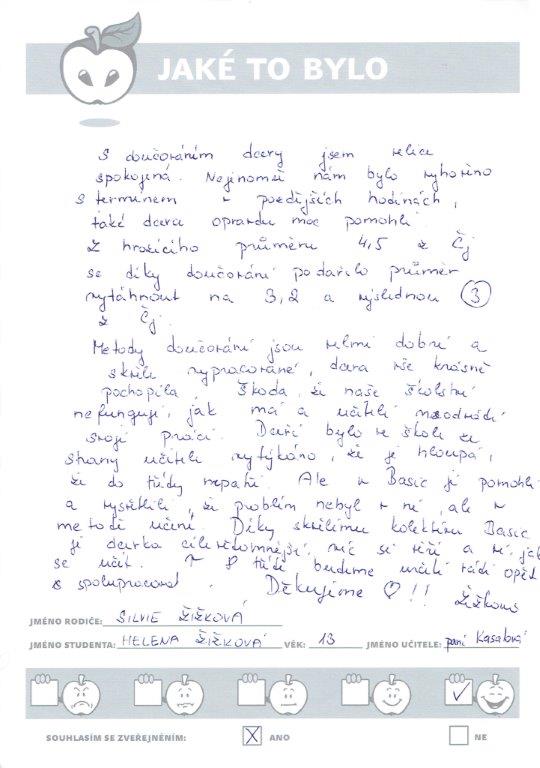 JAKÉ TO BYLO
S doučováním dcery jsem velice
spokojená. Nejenomže nám bylo vyhověno
s termínem v pozdějších hodinách,
také dceru opravdu moc pomohli.
Z hrozícího průměru 4,5 z Čj
se díky doučování podařilo průměr
vytáhnout na 3,2 a výslednou 3
z Čj.
Metody doučování jsou velmi dobré a
skvěle vypracované, dcera vše krásně
pochopila. Škoda, že naše školství
nefunguje, jak má a učitelé neodvádí
svoji práci. Dceři bylo ve škole ze
strany učitelů vytýkáno, že je hloupá,
že do třídy nepatří. Ale v Basic jí pomohli
a vysvětlili, že problém nebyl v ní, ale v
metodě učení. Díky skvělému kolektivu Basic
je dcerka cílevědomnější, víc si věří a ví jak
se učit. V 8 třídě budeme určitě rádi opět
s spolupracovat. Děkujeme ♡!! Žižkovi
JMÉNO RODIČE: SILVIE ŽIŽKOVÁ
JMÉNO STUDENTA: HELENA ŽIŽKOVÁ VĚK: 13 JMÉNO UČITELE: paní Kasalová
SOUHLASÍM SE ZVEŘEJNĚNÍM: X ANO NE